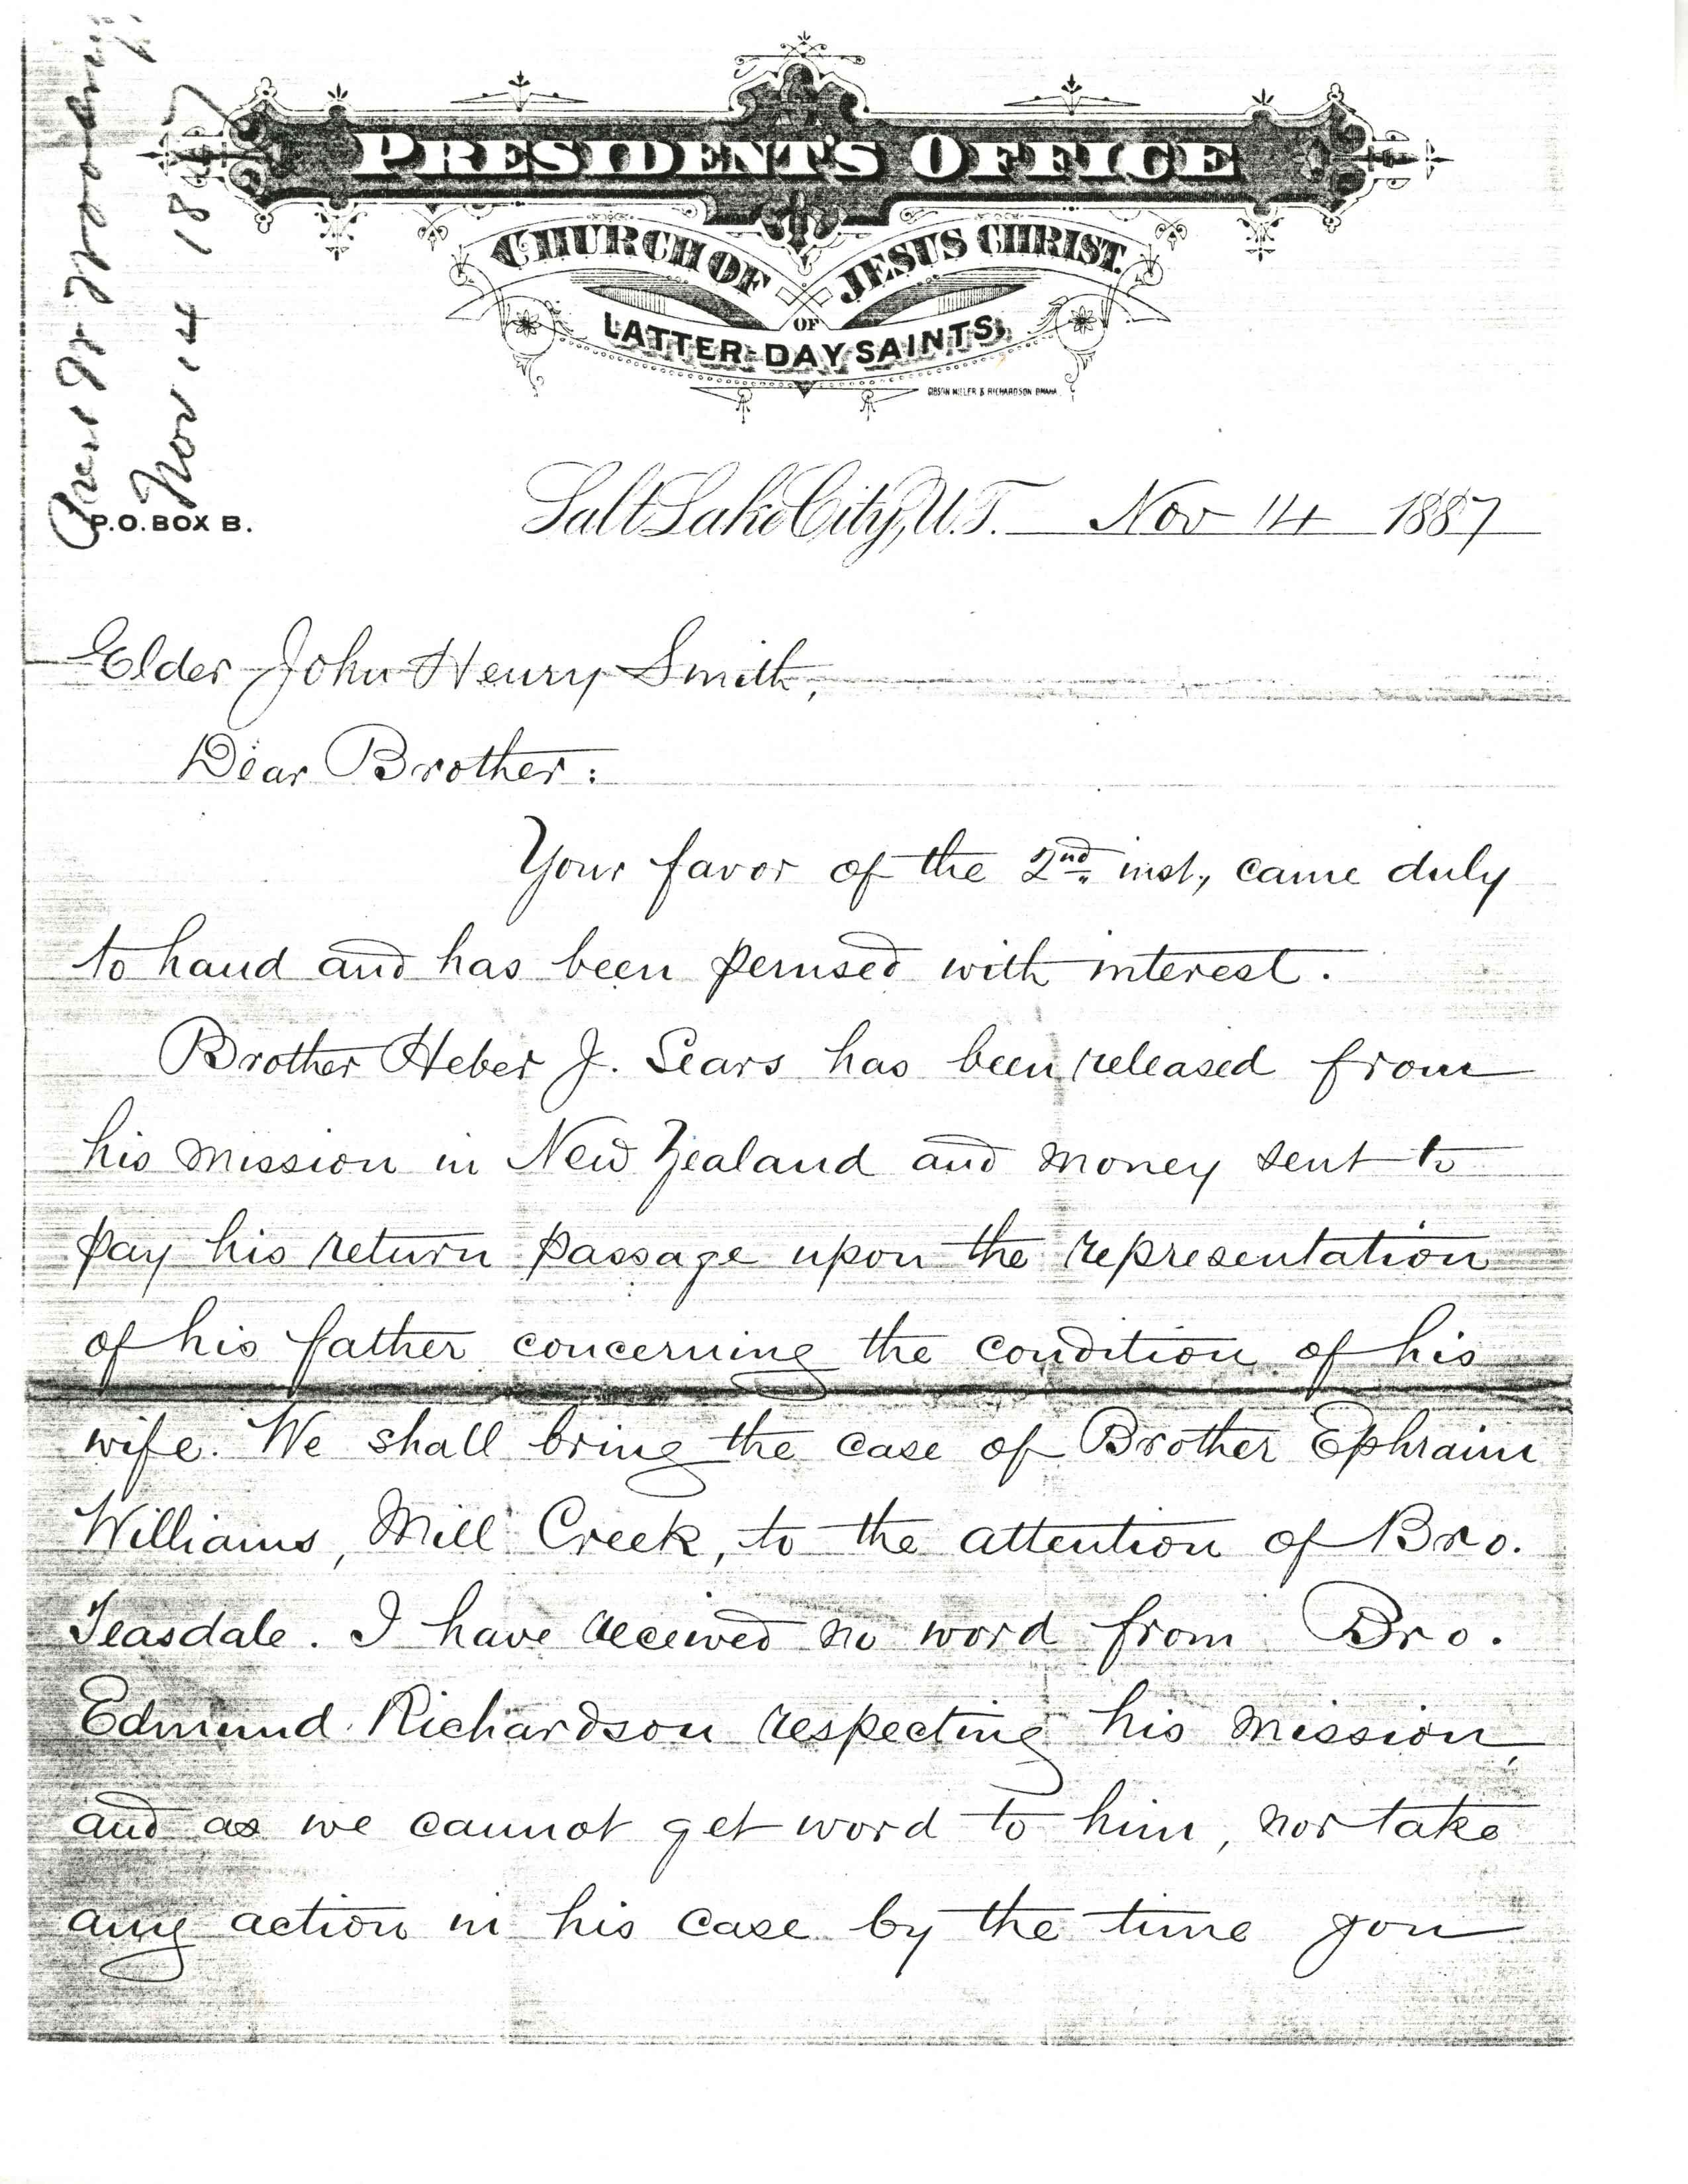 Pres W Woodruff
Nov 14 1887
PRESIDENT'S OFFICE
CHURCH OF JESUS CHRIST
OF
LATTER-DAY SAINTS,
GIBSON MILLER & RICHARDSON OMAHA
P.O. BOX B.
Salt Lake City, U.T. Nov 14 1887
Elder John Henry Smith,
Dear Brother:
Your favor of the 2nd. inst., came duly
to hand and has been perused with interest.
Brother Heber J. Sears has been released from
his mission in New Zealand and money sent to
pay his return passage upon the representation
of his father concerning the condition of his
wife. We shall bring the case of Brother Ephraim
Williams, Mill Creek, to the attention of Bro.
Teasdale. I have received no word from Bro.
Edmund Richardson respecting his mission,
and as we cannot get word to him, nor take
any action in his case by the time you